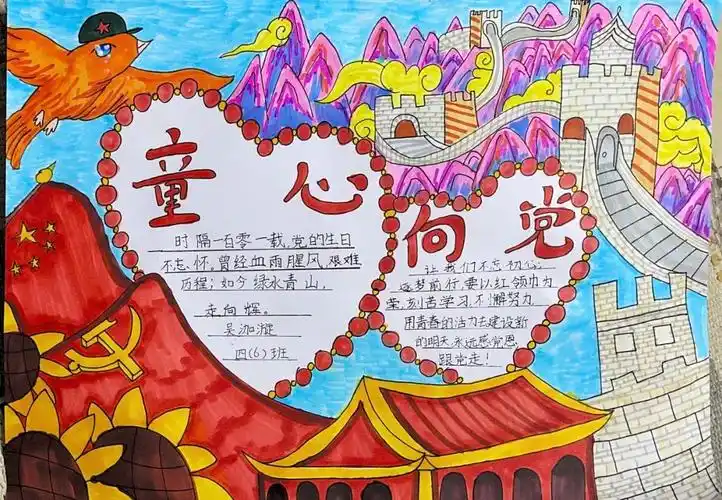 童心
时隔一百零一载,党的生日
不忘、怀,曾经血雨腥风,艰难
历程;如今绿水青山,
走向辉。
四(6)班
向党
让我们不忘初心,
逐梦前行,要以红领巾为
荣,刻苦学习,不懈努力
用青春的活力去建设新
的明天永远感党恩
跟党走!